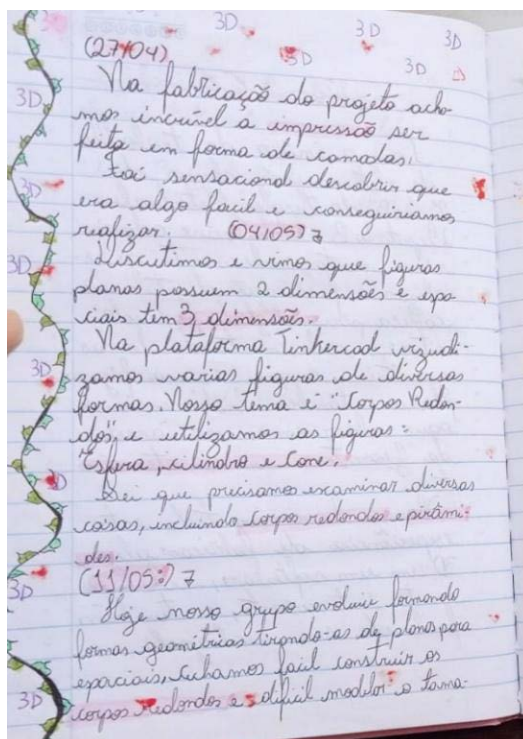 3D 3D 3D
(27/04) 3D 3D
Na fabricação do projeto acha-
mos incrível a impressão ser
3D feita em forma de camadas.
Foi sensacional descobrir que
3D era algo facil e conseguiriamos
reafizar. (04/05)
3D Discutimos e vimos que figuras
planas possuem 2 dimensões e espa-
ciais tem 3 dimensões.
Na plataforma Tinkercad vizuali-
3D zamos varias figuras de diversas
formas. Nosso tema é "Corpos Redon-
dos", e utilizamos as figuras:
Esfera, cilindro e Cone.
3D Sei que precisamos examinar diversas
coisas, incluindo corpos redondos e pirâmi-
des.
(11/05:)
3D Hoje nosso grupo evoluiu formando
formas geométricas tirando-as de planos para
espaciais, achamos facil construir os
3D corpos redondos e dificil modelar o tama-